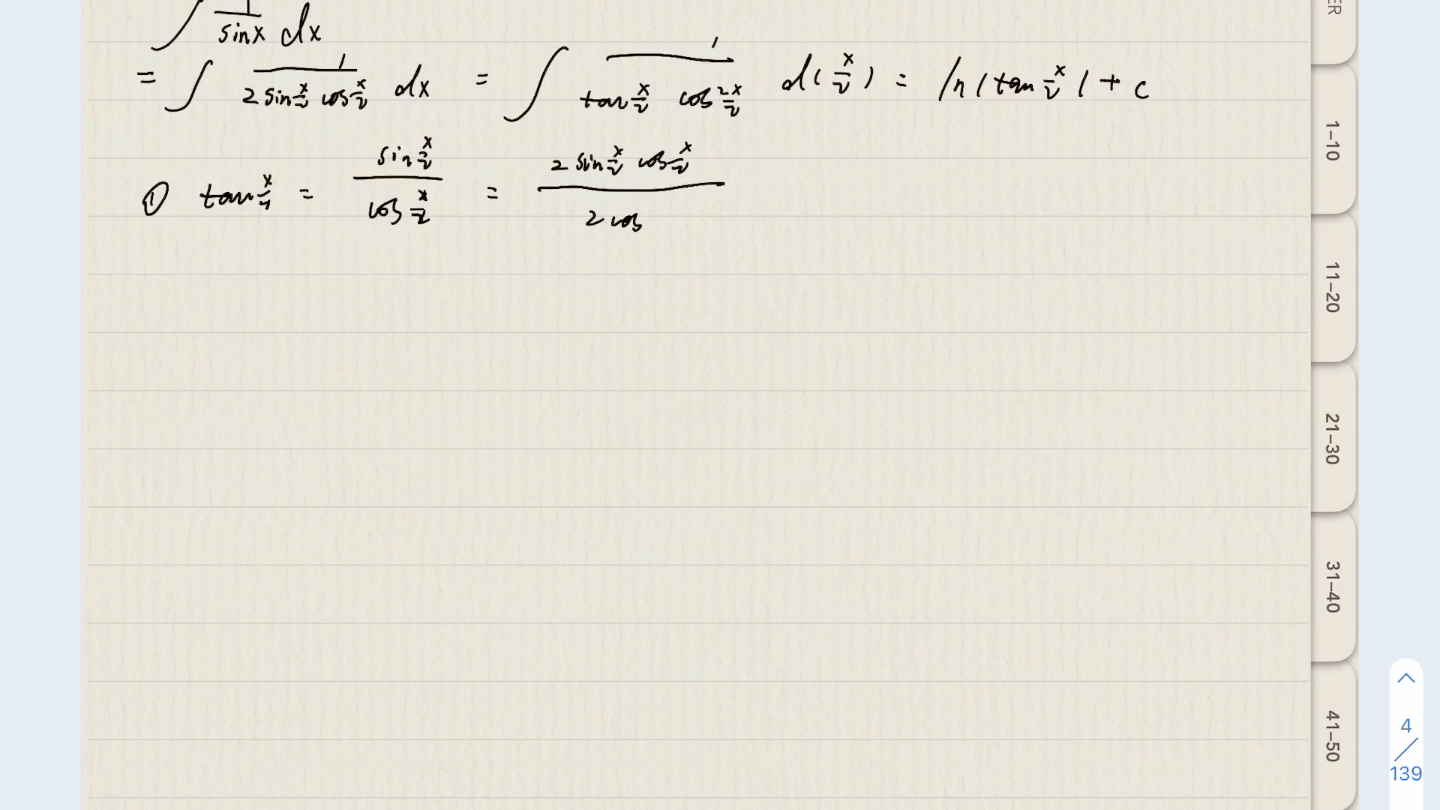 ∫ 1/sinx dx
= ∫ 1/(2 sin x/2 cos x/2) dx = ∫ 1/(tan x/2 cos² x/2) d(x/2) = ln|tan x/2| + c
① tan x/4 = (sin x/2)/(cos x/2) = (2 sin x/2 cos x/2)/(2 cos
ER
1–10
11–20
21–30
31–40
41–50
4
/
139